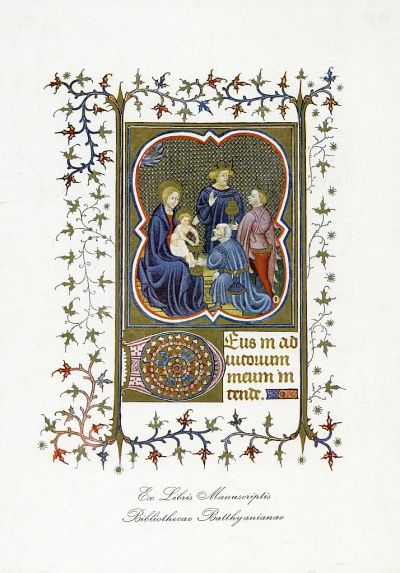 DEus in ad
iutorium
meum in
tende.
Ex Libris Manuscriptis
Bibliothecae Batthyanianae